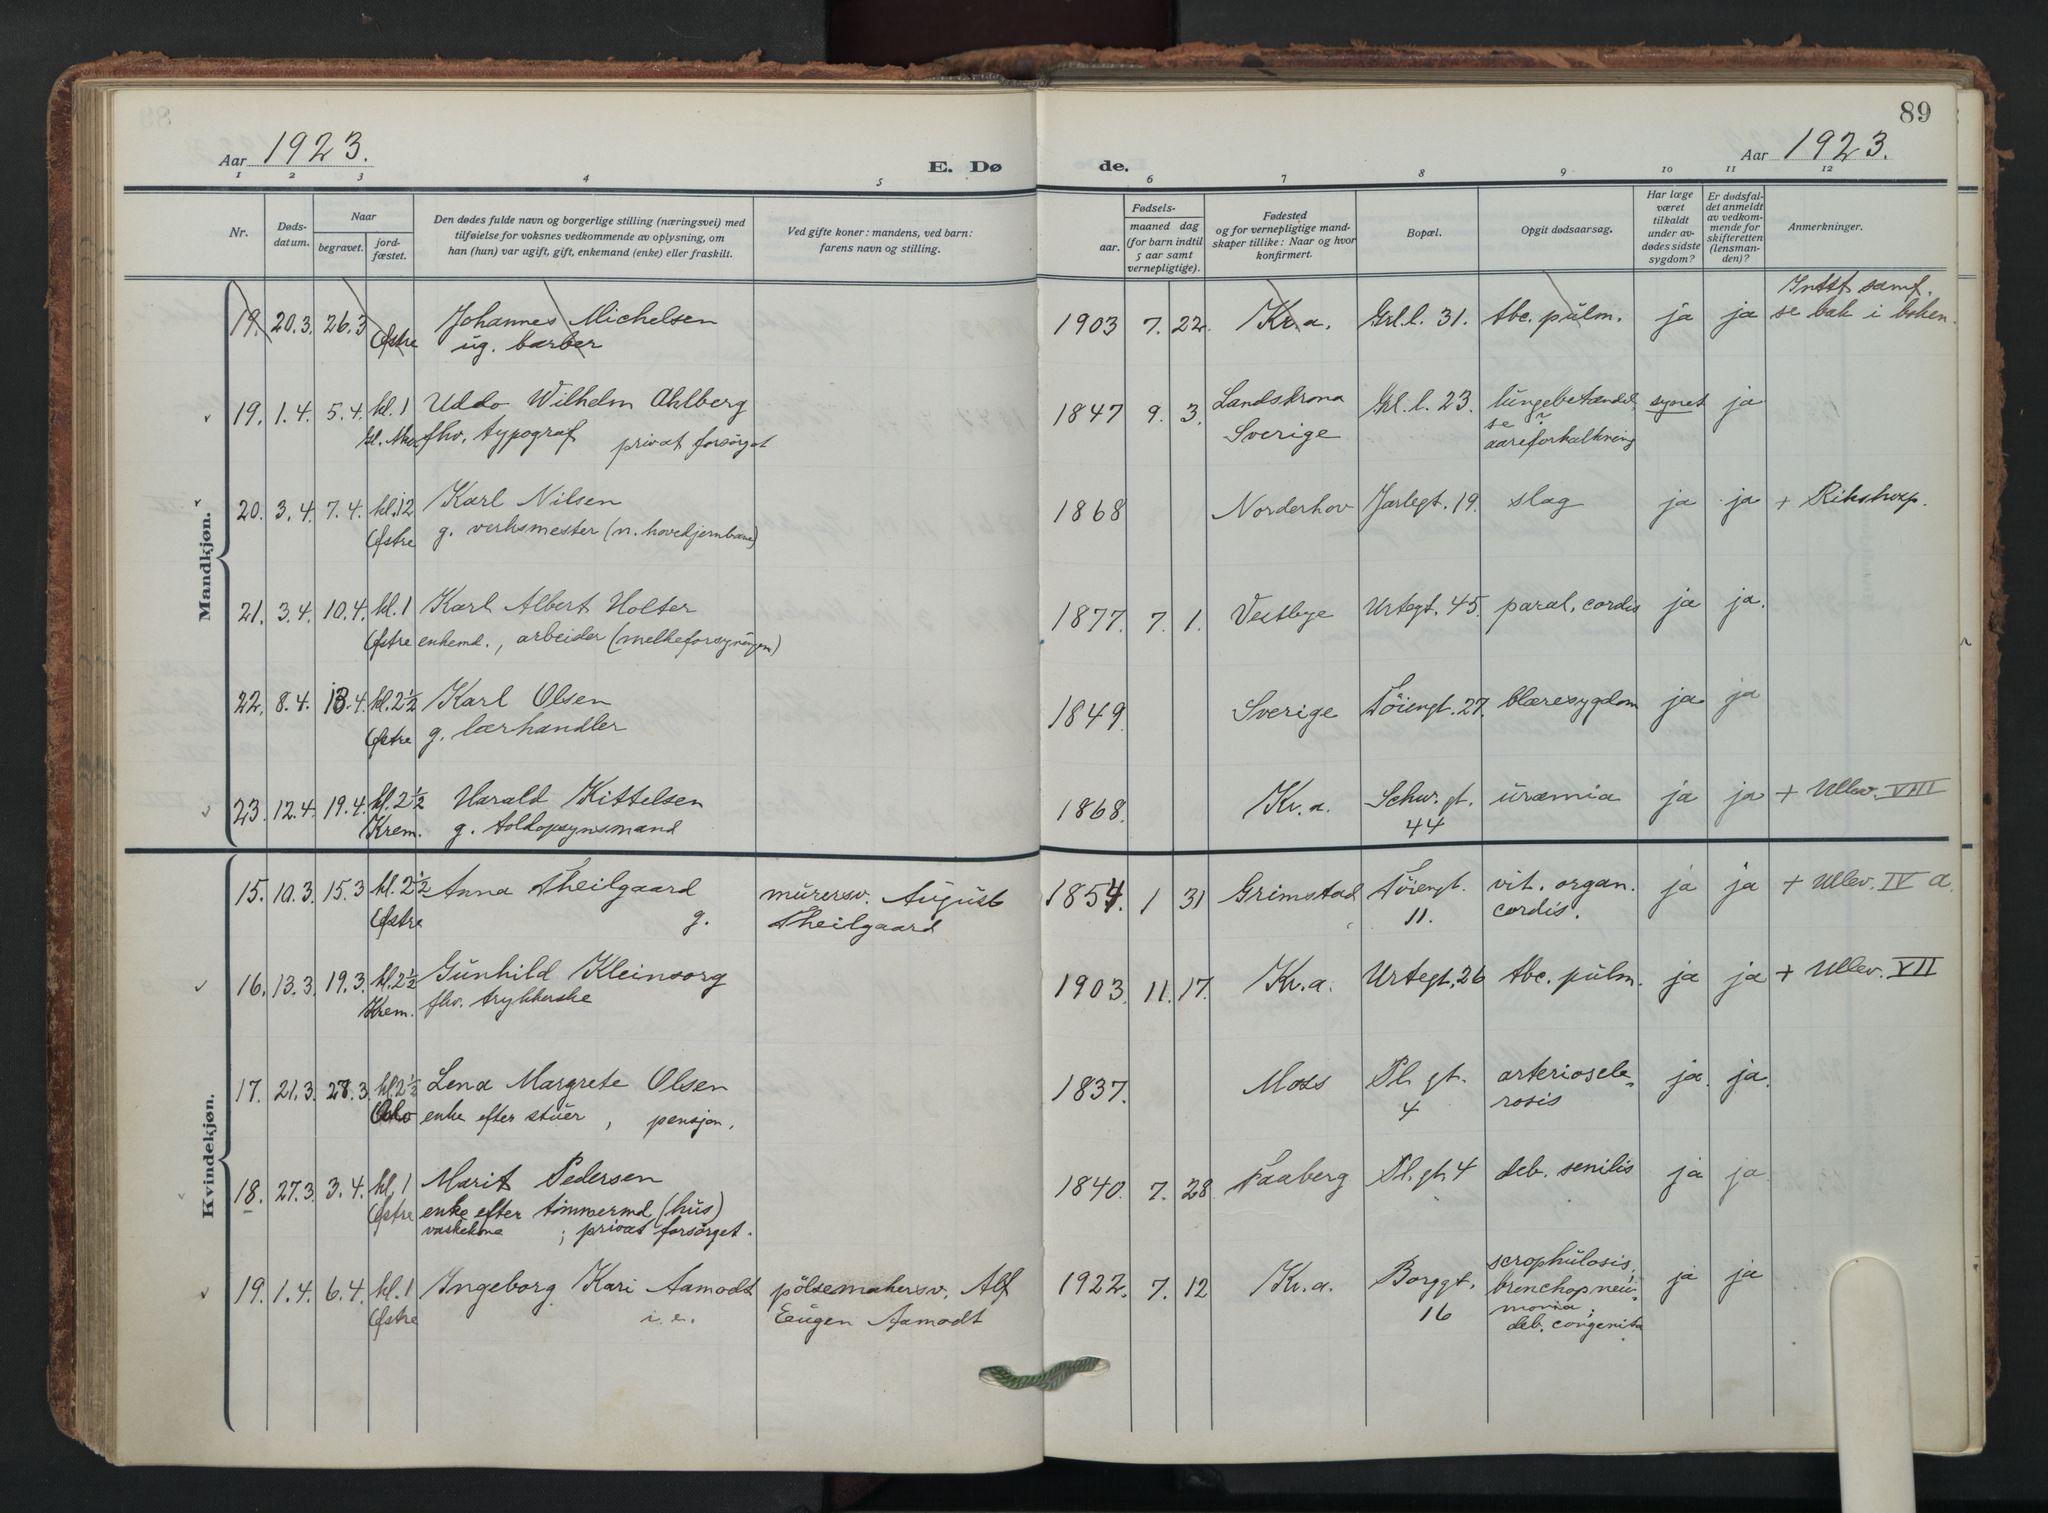 89
Aar 1923.
E. Dø de.
Aar 1923.
1 2 3 4 5 6 7 8 9 10 11 12
Nr.
Døds-
datum.
Naar
begravet.
jord-
fæstet.
Den dødes fulde navn og borgerlige stilling (næringsvei) med
tilføielse for voksnes vedkommende av oplysning, om
han (hun) var ugift, gift, enkemand (enke) eller fraskilt.
Ved gifte koner: mandens, ved barn:
farens navn og stilling.
Fødsels-
aar.
maaned dag
(for barn indtil
5 aar samt
vernepligtige).
Fødested
og for vernepligtige mand-
skaper tillike: Naar og hvor
konfirmert.
Bopæl.
Opgit dødsaarsag.
Har læge
været
tilkaldt
under av-
dødes sidste
sygdom?
Er dødsfal-
det anmeldt
av vedkom-
mende for
skifteretten
(lensman-
den)?
Anmerkninger.
Mandkjøn.
19. 20.3. 26.3 Østre Johannes Michelsen
ug. barber
1903 7. 22. Kr.a. Grl.l. 31. tbc. pulm. ja ja
se bak i boken.
19. 1.4. 5.4. kl. 1 Uddo Wilhelm Ahlberg
fhv. typograf privat forsørget
1847 9. 3. Landskrona
Sverige
Grl.l. 23. lungebetændel
se
aareforkalkning
synet ja
20. 3.4. 7.4. kl. 12 Karl Nilsen
Østre g. verksmester (n. hovedjernbane)
1868 Norderhov Jarlegt. 19. slag ja ja + Rikshosp.
21. 3.4. 10.4. kl. 1 Karl Albert Holter
Østre enkemd., arbeider (melkeforsyningen)
1877. 7. 1. Vestbye Urtegt. 45. paral. cordis ja ja.
22. 8.4. 13.4. kl. 2½ Karl Olsen
Østre g. lærhandler
1849. Sverige Töiengt. 27. blæresygdom ja ja
23. 12.4. 19.4. kl. 2½ Harald Kittelsen
Krem. g. toldopsynsmand
1868. Kr.a. Schw. gt.
44
uræmia ja ja + Ullev. VIII
Kvindekjøn.
15. 10.3. 15.3 kl. 2½ Anna Theilgaard
Østre g.
murersv. August
Theilgaard
1854. 1 31 Grimstad Töiengt.
11.
vit. organ.
cordis.
ja ja + Ullev. IV a.
16. 13.3. 19.3. kl. 2½ Gunhild Kleinsorg
Krem. fhv. trykkerske
1903. 11. 17. Kr.a. Urtegt. 26 tbc. pulm. ja ja + Ullev. VII
17. 21.3. 28.3. kl. 2½ Lena Margrete Olsen
enke efter stuer, pensjon.
1837. Moss Pl. gt.
4
arterioscle-
rosis
ja. ja.
18. 27.3. 3.4. kl. 1 Marit Pedersen
Østre enke efter tømmermd (hus)
vaskekone ; privat forsørget.
1840. 7. 28. Faaberg Pl. gt. 4 deb. senilis ja ja.
19. 1.4. 6.4. kl. 1 Ingeborg Kari Aamodt
Østre i.e.
pölsemakersv. Alf
Eugen Aamodt
1922. 7. 12 Kr.a. Borggt.
16
scrophulosis;
bronchopneu-
monia;
deb. congenita
ja ja